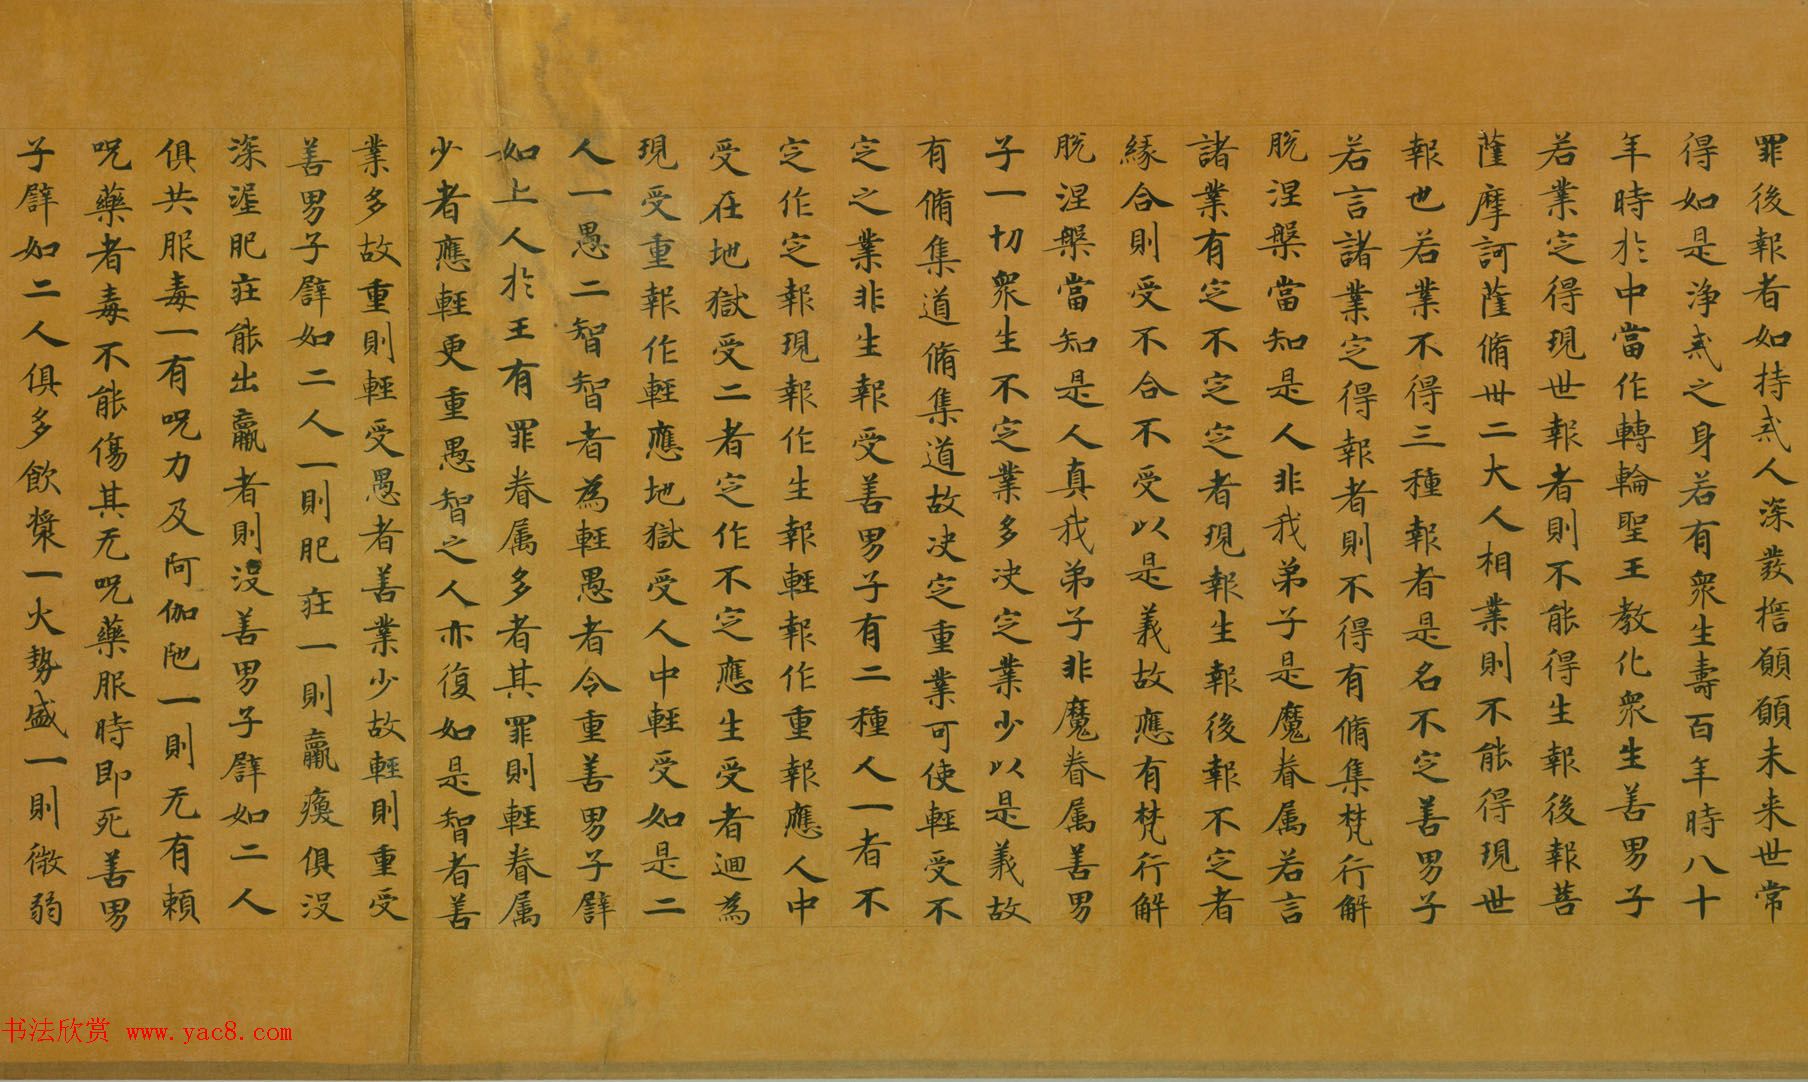 罪後報者如持戒人深發擔願願未来世常
得如是浄戒之身若有衆生壽百年時八十
年時於中當作轉輪聖王教化衆生善男子
若業定得現世報者則不能得生報後報菩
薩摩訶薩脩卅二大人相業則不能得現世
報也若業不得三種報者是名不定善男子
若言諸業定得報者則不得有脩集梵行解
脱涅槃當知是人非我弟子是魔眷属若言
諸業有定不定定者現報生報後報不定者
緣合則受不合不受以是義故應有梵行解
脱涅槃當知是人真我弟子非魔眷属善男
子一切衆生不定業多决定業少以是義故
有脩集道脩集道故决定重業可使輕受不
定之業非生報受善男子有二種人一者不
定作定報現報作生報輕報作重報應人中
受在地獄受二者定作不定應生受者迴為
現受重報作輕應地獄受人中輕受如是二
人一愚二智智者為輕愚者令重善男子譬
如上人於王有罪眷属多者其罪則輕眷属
少者應輕更重愚智之人亦復如是智者善
業多故重則輕受愚者善業少故輕則重受
善男子譬如二人一則肥㽵一則羸瘦俱没
深渥肥㽵能出羸者則没善男子譬如二人
俱共服毒一有呪力及阿伽陁一則无有頼
呪藥者毒不能傷其无呪藥服時即死善男
子譬如二人俱多飲漿一火勢盛一則微弱
书法欣赏 www.yac8.com